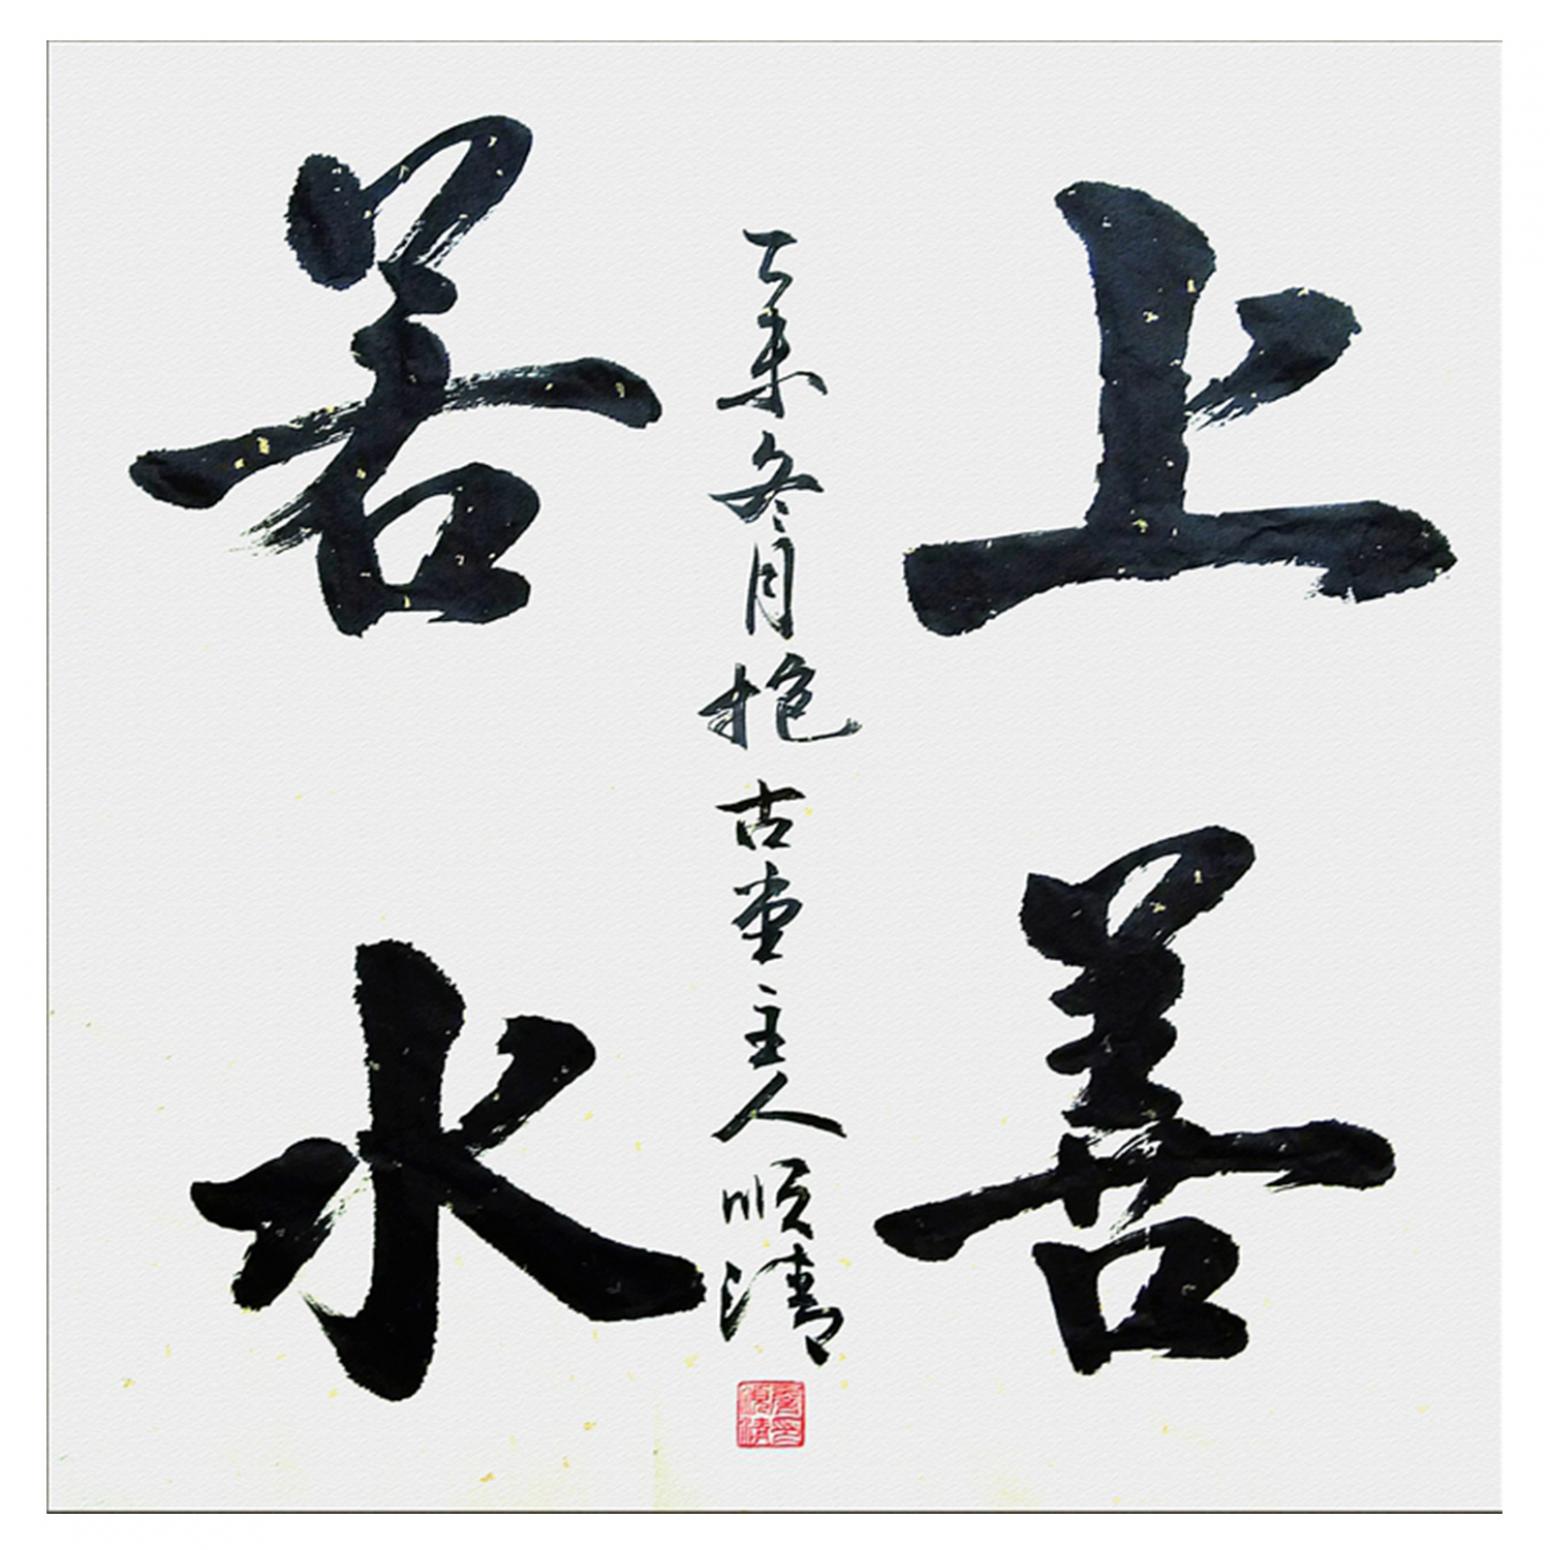 上善
若水
乙未冬月抱古堂主人顺清